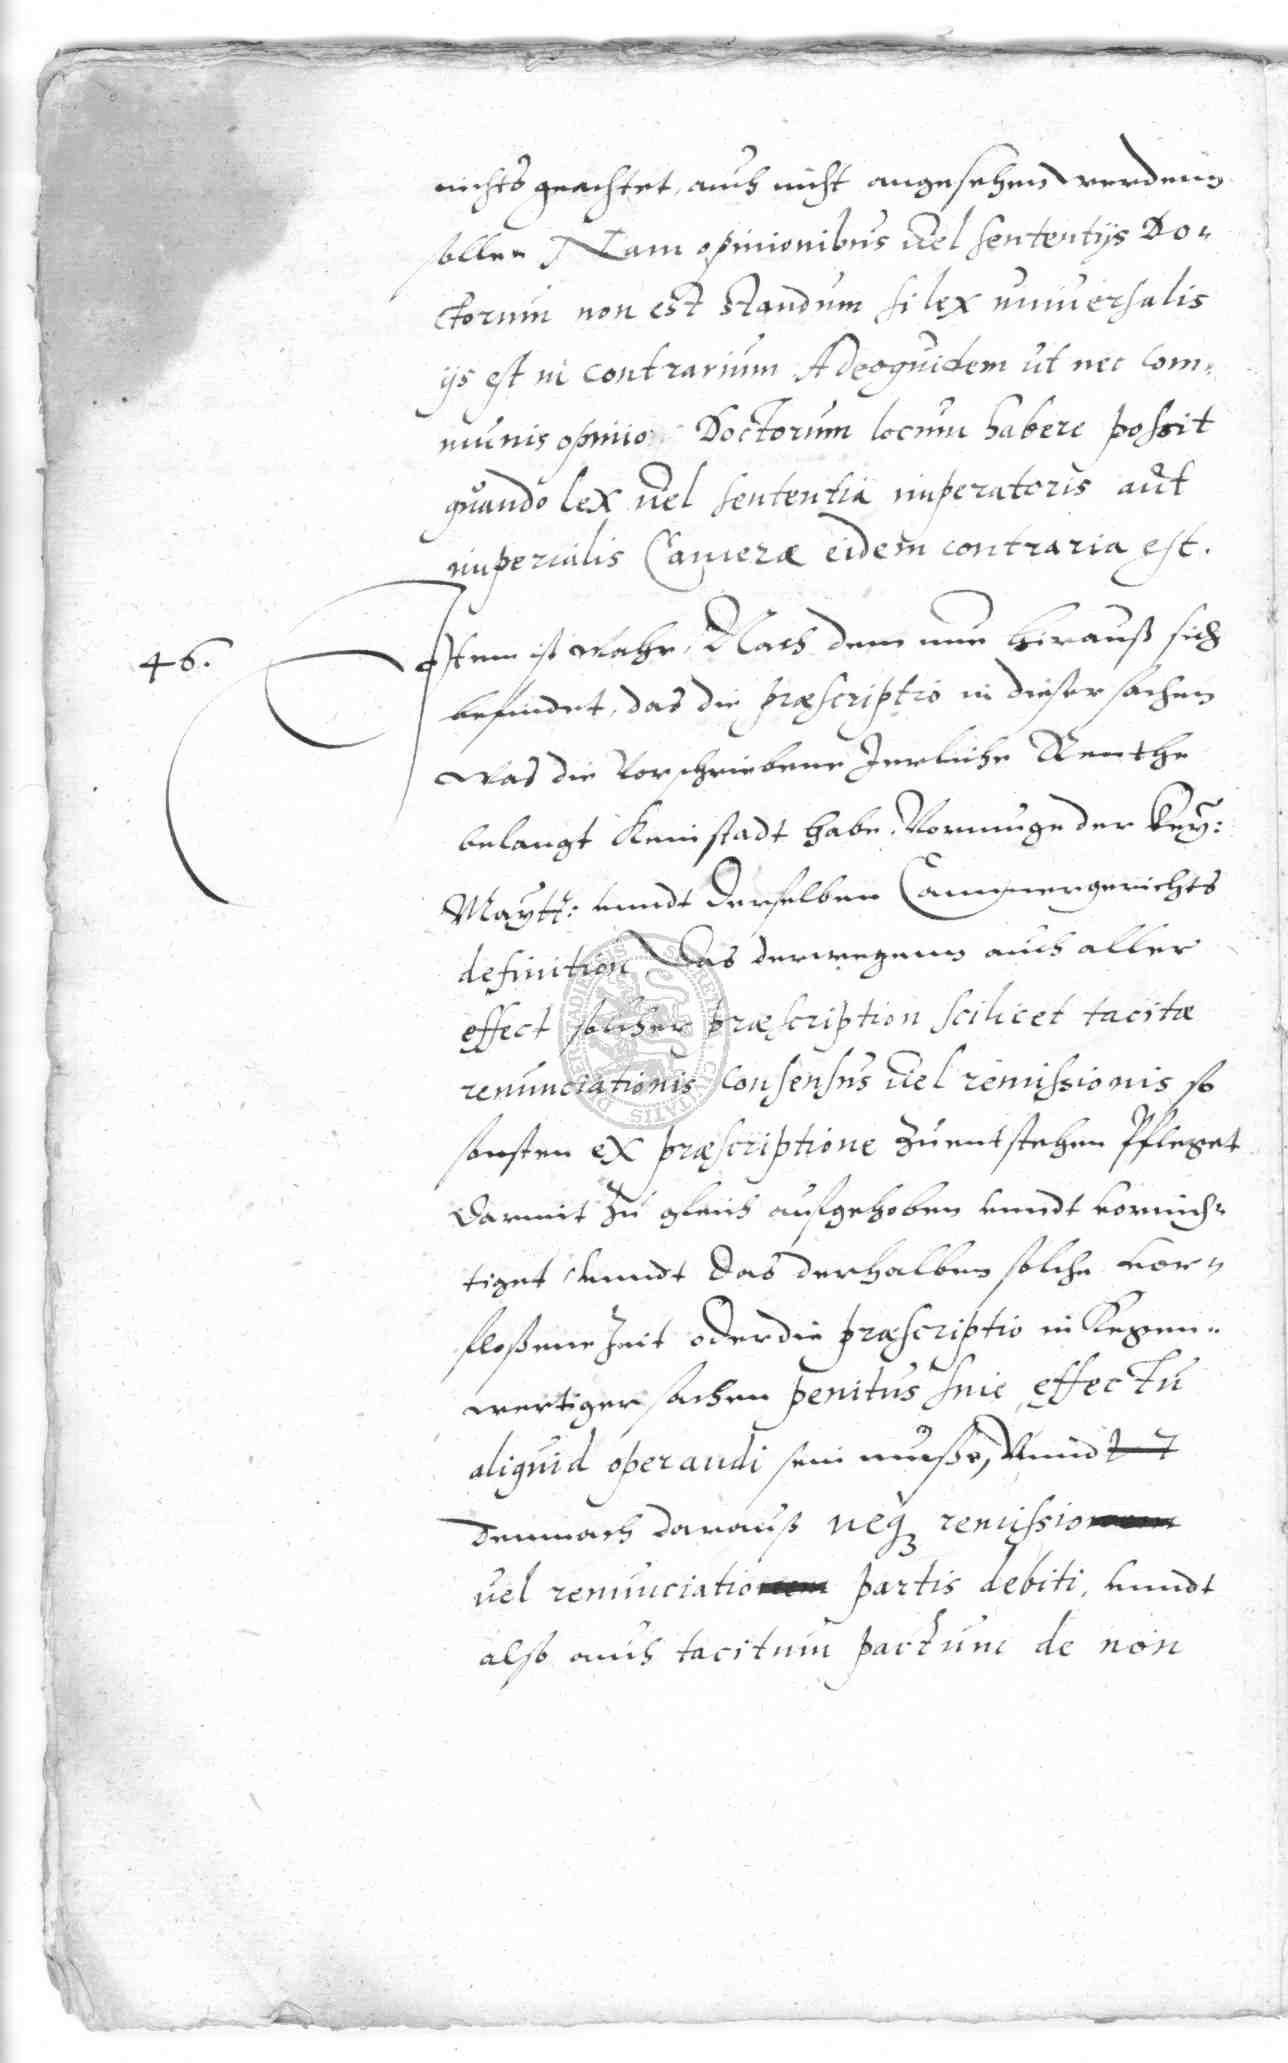 nichts geachtet, auch nicht angesehen werdenn
sollen Nam opinionibus uel sententijs Do„
ctorum non est standum si lex uniuersalis
ijs est in contrarium Adeoquidem ut nec com„
munis opinio Doctorum locum habere possit
quando lex uel sententia imperatoris aut
imperialis Cameræ eidem contraria est.
46. Item ist wahr, Nach dem nun hirauß sich
befindet, das die præscriptio in dieser sachen
was die vorschriebene Jerliche Renthe
belangt kein stadt habe, Vormuge der Key:
Maytt: unndt derselben Cammergerichts
definition Das derwegenn auch aller
effect solcher præscription scilicet tacitæ
renunciationis consensus uel remissionis so
sonsten ex præscriptione zuentstehen pfleget
darmit zu gleich aufgehoben unndt vornich„
tiget, unndt das derhalben solche vor„
floßene Zeit oder die præscriptio in kegen„
wertiger sachen penitus sine effectu
aliquid operandi sein muße, Unndt
demnach darauß neq3 remissio
uel renunciatio partis debiti, unndt
also auch tacitum pactum de non